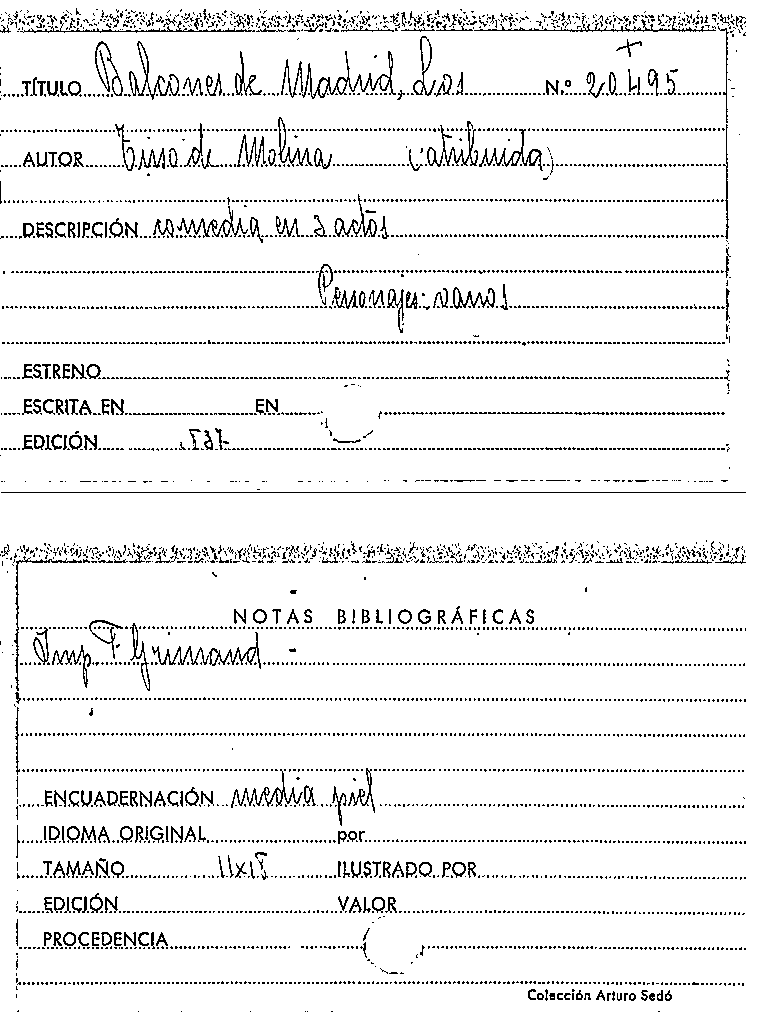 +
TÍTULO Balcones de Madrid, Los N.º 20495
AUTOR Tirso de Molina (atribuida)
DESCRIPCIÓN comedia en 3 actos
Personajes: varios
ESTRENO
ESCRITA EN EN
EDICIÓN
NOTAS BIBLIOGRÁFICAS
Imp. F. Grimaud -
ENCUADERNACIÓN media piel
IDIOMA ORIGINAL por
TAMAÑO 11x15 ILUSTRADO POR
EDICIÓN VALOR
PROCEDENCIA
Colección Arturo Sedó